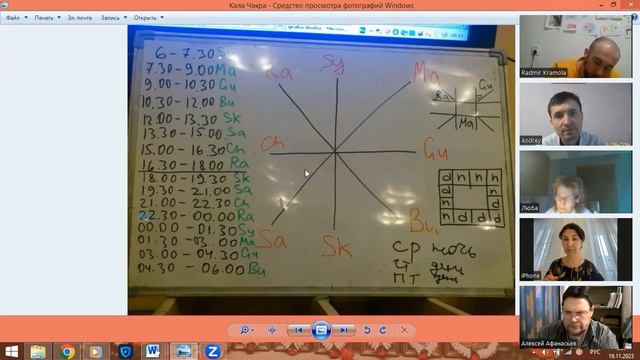 Кала Чакра - Средство просмотра фотографий Windows
Файл Печать Эл. почта Запись Открыть
6-7.30 S
7.30-9.00 Ma
9.00-10.30 Gu
10.30-12.00 Bu
12.00-13.30 Sk
13.30-15.00 Sa
15.00-16.30 Ch
16.30-18.00 Ra
18.00-19.30 Sk
19.30-21.00 Sa
21.00-22.30 Ch
22.30-00.00 Ra
00.00-01.30 Sy
01.30-03.00 Ma
03.00-04.30 Gu
04.30-06.00 Bu
Ra Sy Ma
Ch Gu
Sa Sk Bu
Ra Gu
Ma
d n n n
d n
n d
n d d d
ср ночь
чт день
пт день
Radmir Kramola
Andrey
Люба
iPhone
Алексей Афанасьев
РУС
19.11.2023